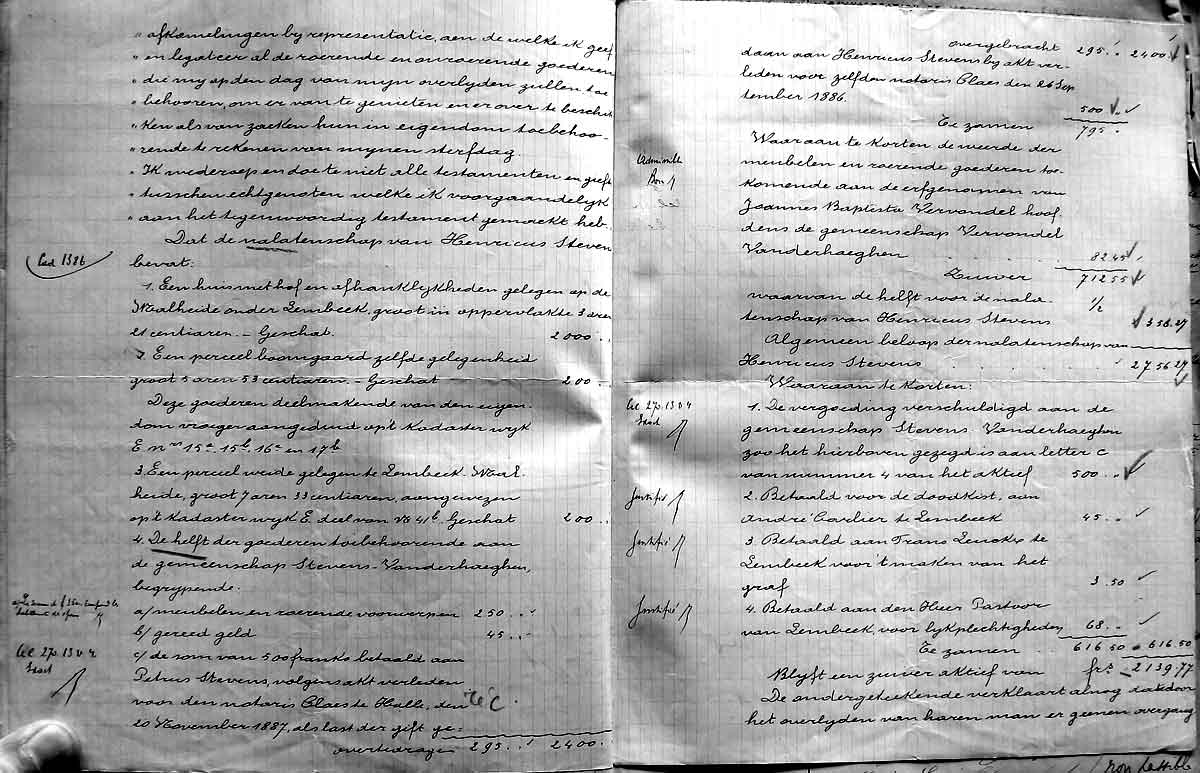 " afkomelingen by representatie, aen de welke ik geef
" en legateer al de roerende en onroerende goederen
" die my op den dag van myn overlyden zullen toe
" behooren, om er van te genieten en er over te beschik
" ken als van zaeken hun in eigendom toebehoo-
" rende te rekenen van mynen sterfdag.
" Ik wederoep en doe te niet alle testamenten en gift
" tusschen echtgenoten welke ik voorgaandelyk
" aan het tegenwoordig testament gemaekt heb-
Dat de nalatenschap van Henricus Steven
Cad 1386
bevat:
1. Een huis met hof en afhanklykheden gelegen op de
Wealheide onder Lembeek, groot in oppervlakte 3 aren
21 centiaren. - Geschat. 2000 ..
2. Een perceel boomgaard zelfde gelegenheid
groot 5 aren 53 centiaren. - Geschat 200 ..
Deze goederen deelmakende van den eigen
dom vroeger aangeduid op't Kadaster wyk
E nrs 15a. 15b. 16a en 17b
3. Een perceel weide gelegen te Lembeek. Weal-
heide, groot 7 aren 33 centiaren, aangewezen
op't Kadaster wyk E. deel van No 41b. Geschat 200 ..
4. De helft der goederen toebehoorende aan
de gemeenschap Stevens-Vanderhaeghen,
begrypende:
a/ meubelen en roerende voorwerpen 250 ..
b/ gereed geld 45 ..
c/ de som van 500 franks betaald aan
Petrus Stevens, volgens akt verleden
voor den notaris Claes te Halle, den
20 November 1887, als last der gift ge-
overtedragen 295 .. 2400.
overgebracht 295 .. 2400
daan aan Henricus Stevens by akt ver-
leden voor zelfden notaris Claes den 26 Sep
tember 1886. 500 ..
Te zamen 795 .
Waaraan te korten de weerde der
meubelen en roerende goederen toe-
komende aan de erfgenomen van
Joannes Baptista Vervandel hoof-
dens de gemeenschap Vervandel
Vanderhaeghen 82 45
Zuiver 712 55
waarvan de helft voor de nala- 1/2
tenschap van Henricus Stevens 356.27
Algemeen beloop der nalatenschap van
Henricus Stevens 2756 27
Waaraan te Korten:
1. De vergoeding verschuldigd aan de
gemeenschap Stevens Vanderhaeghen
zoo het hierboven gezegd is aan letter c
van nummer 4 van het aktief 500 ..
Justifié
2. Betaald voor de doodkist, aan
André Carlier te Lembeek 45 ..
Justifié
3. Betaald aan Frans Lenckx te
Lembeek voor 't maken van het
graf 3.50
Justifié
4. Betaald aan den Heer Pastoor
van Lembeek, voor lykplechtigheden 68 ..
Te zamen 616 50 616.50
Blyft een zuiver aktief van frs 2139.77
De ondergeteekende verklaart alnog dat door
het overlyden van haren man er geenen overgang